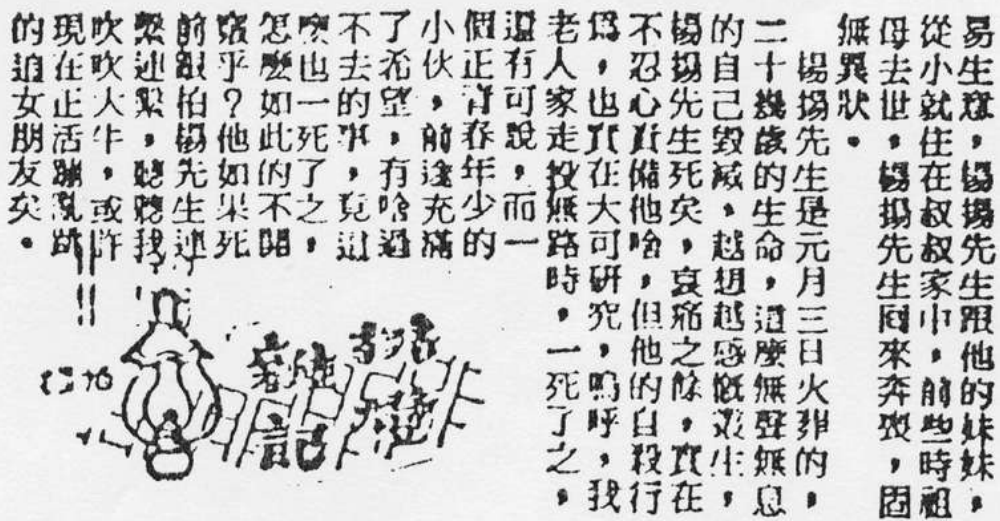 易生意，楊揚先生跟他的妹妹，
從小就住在叔叔家中，前些時祖
母去世，楊揚先生回來奔喪，固
無異狀。
楊揚先生是元月三日火葬的，
二十幾歲的生命，這麼無聲無息
的自己毀滅，越想越感慨叢生，
楊揚先生死矣，哀痛之餘，實在
不忍心責備他啥，但他的自殺行
為，也實在大可研究，嗚呼，我
老人家走投無路時，一死了之，
還有可說，而一
個正青春年少的
小伙，前途充滿
了希望，有啥過
不去的事，竟過
也一死了之，
怎麼如此的不開
竅乎？他如果死
前跟怕楊先生連
繫連繫，聽聽我
吹吹大牛，或許
現在正活蹦亂跳
的追女朋友矣。